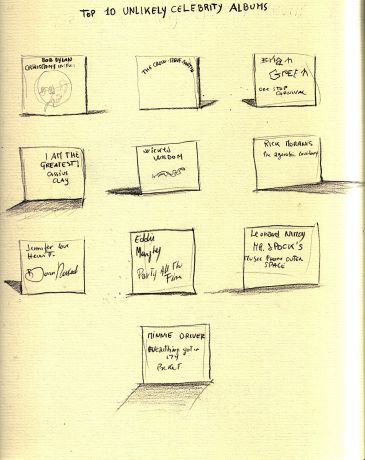 TOP 10 UNLIKELY CELEBRITY ALBUMS
BOB DYLAN
CHRISTMAS IN THE..
THE CROW: STEVE MARTIN
BRIAN
GREEN
ONE STOP
CARNIVAL
I AM THE
GREATEST!
CASSIUS
CLAY
WICKED
WISDOM
RICK MORANIS
The agoraphobic cowboy
Jennifer Love
Hewitt
Eddie
Murphy
Party All The
Time
LEONARD NIMOY
MR. SPOCK'S
MUSIC FROM OUTER
SPACE
MINNIE DRIVER
EVERYTHING I got in
my
POCKET